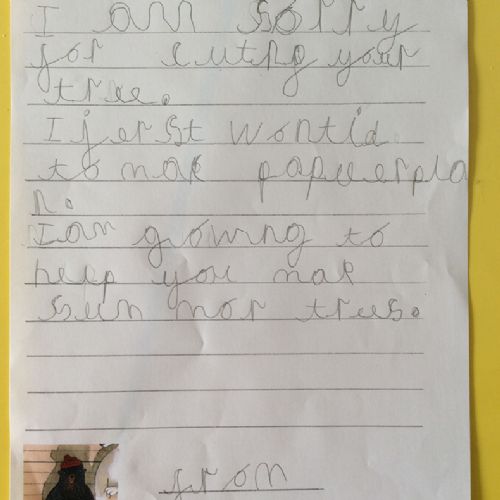 I am sorry
for cuting your
tree.
I jerst wontid
to mak papuerpla
n.
I am growing to
help you mak
sum mor trees.
from